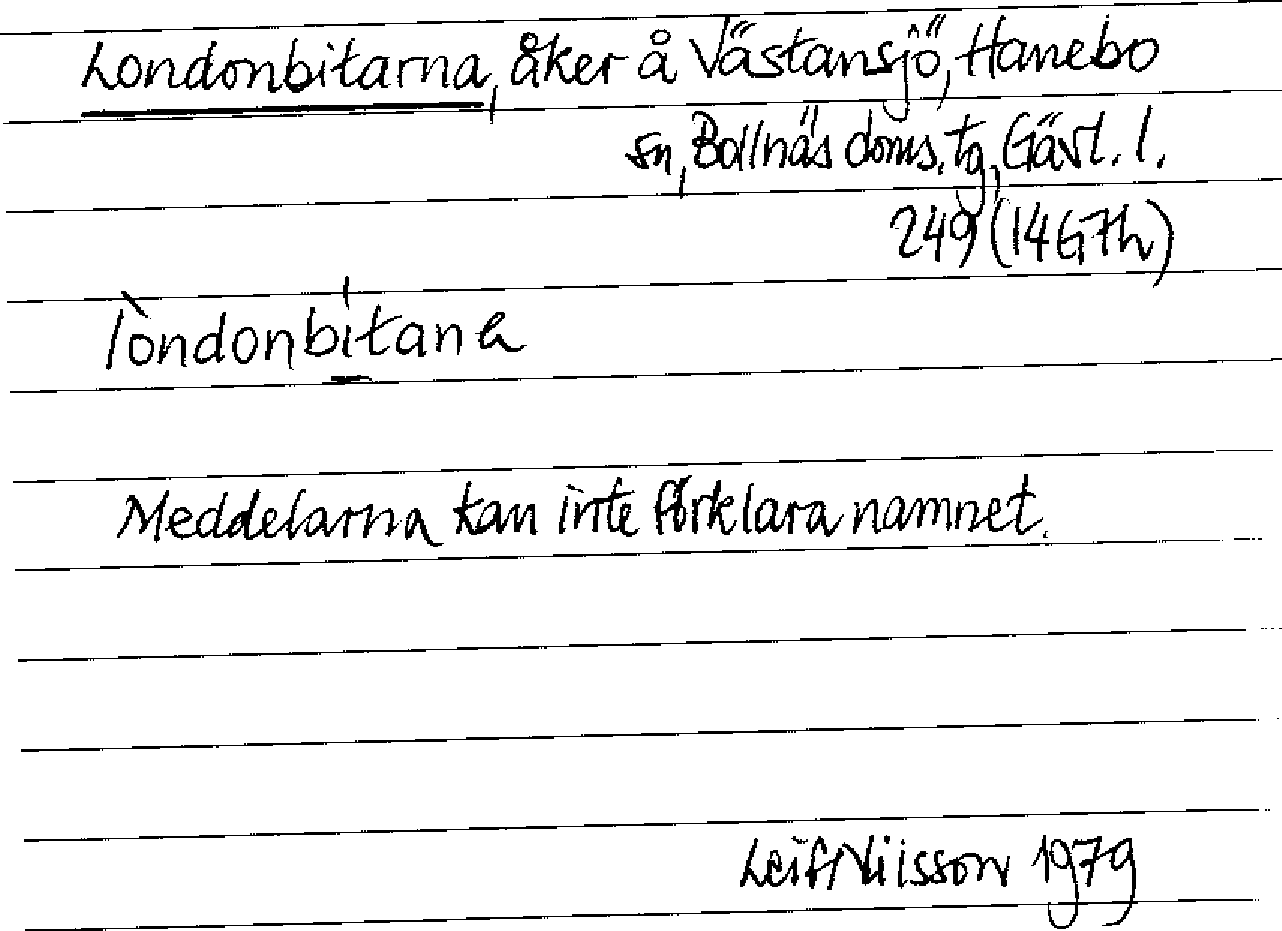 Londonbitarna, åker å Västansjö, Hanebo
sn, Bollnäs doms. tg, Gävl. l.
249 (14G7h)
lòndonbi̠tana
Meddelarna kan inte förklara namnet.
Leif Nilsson 1979